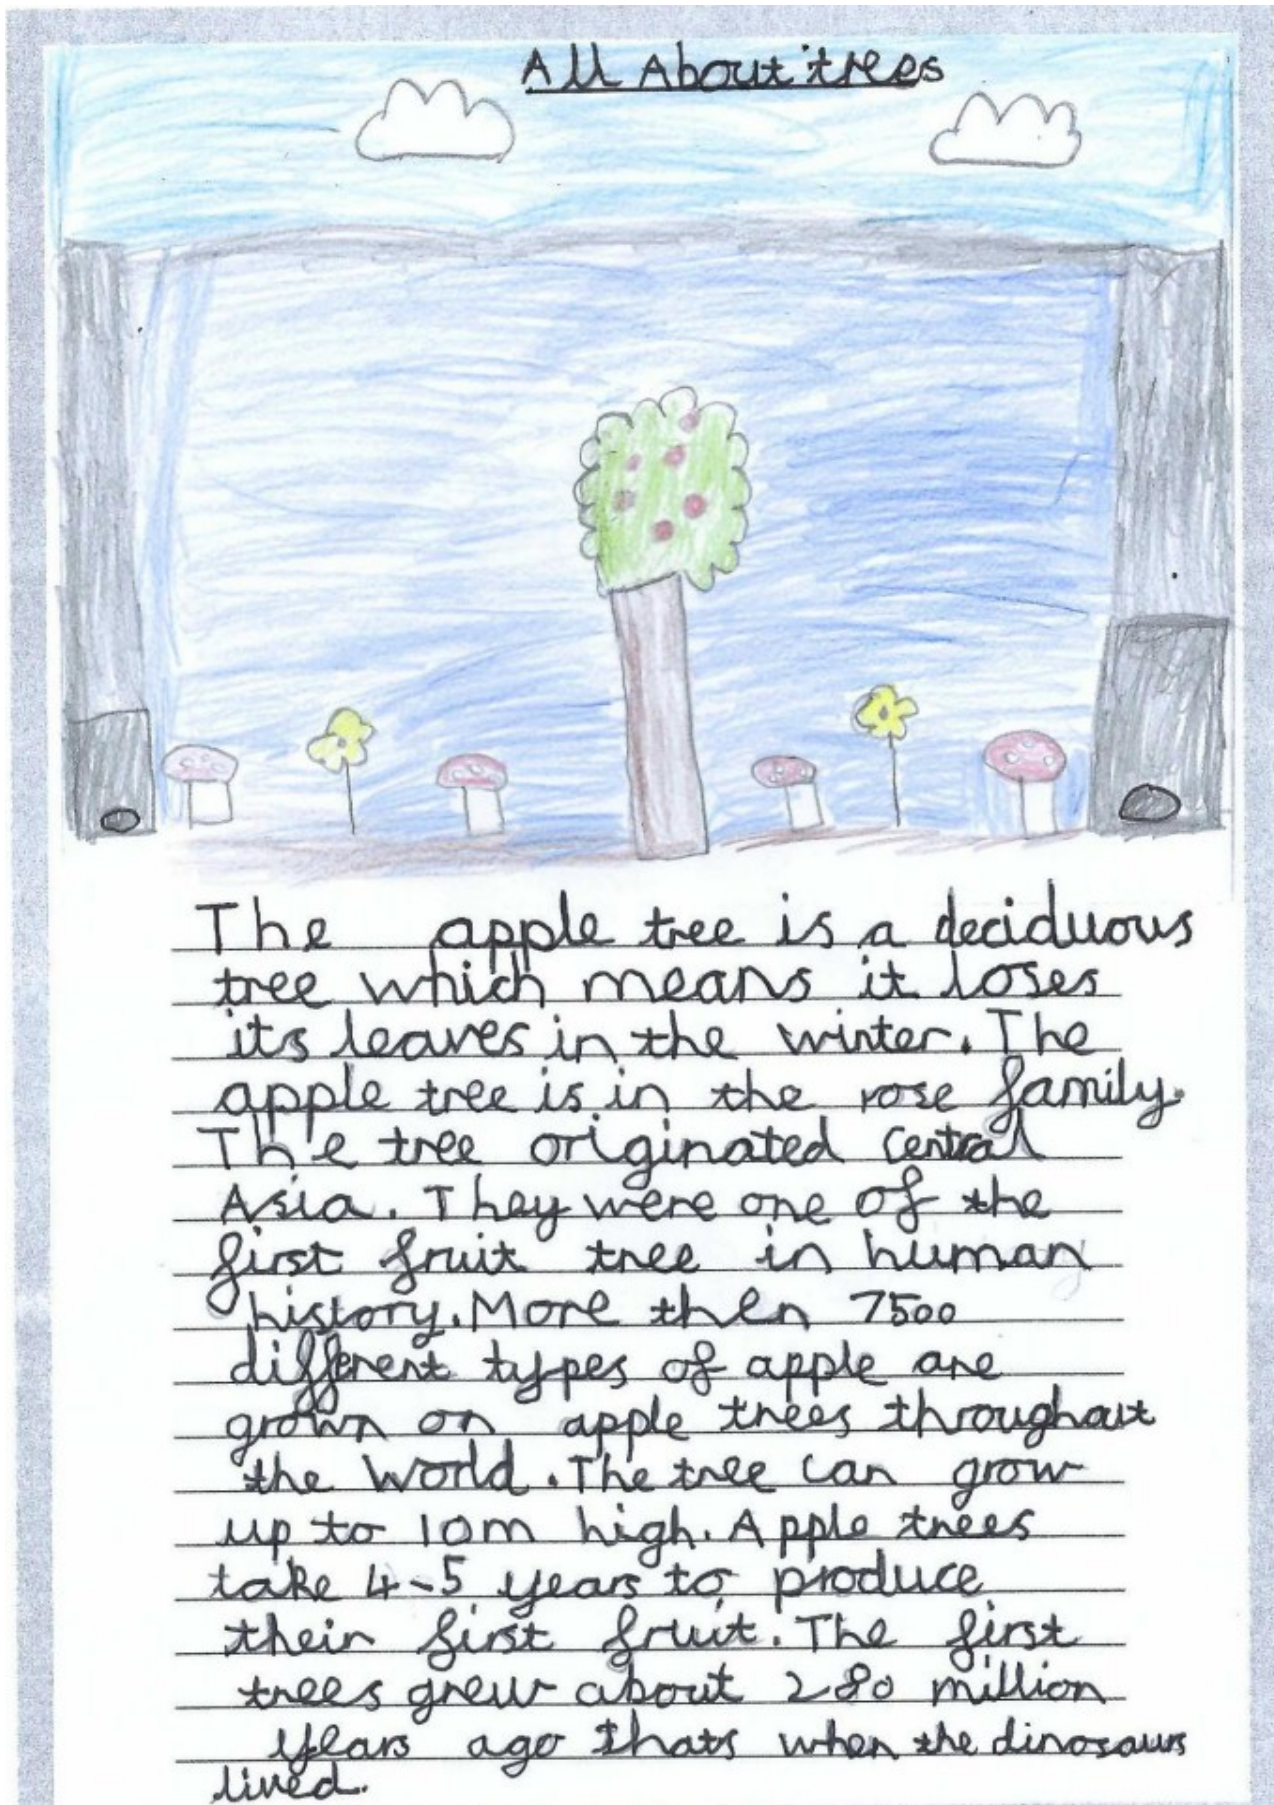 All About trees
The apple tree is a deciduous
tree which means it loses
its leaves in the winter. The
apple tree is in the rose family.
The tree originated central
Asia. They were one of the
first fruit tree in human
history. More then 7500
different types of apple are
grown on apple trees throughout
the world. The tree can grow
up to 10m high. Apple trees
take 4-5 years to produce
their first fruit. The first
trees grew about 280 million
years ago thats when the dinosaurs
lived.